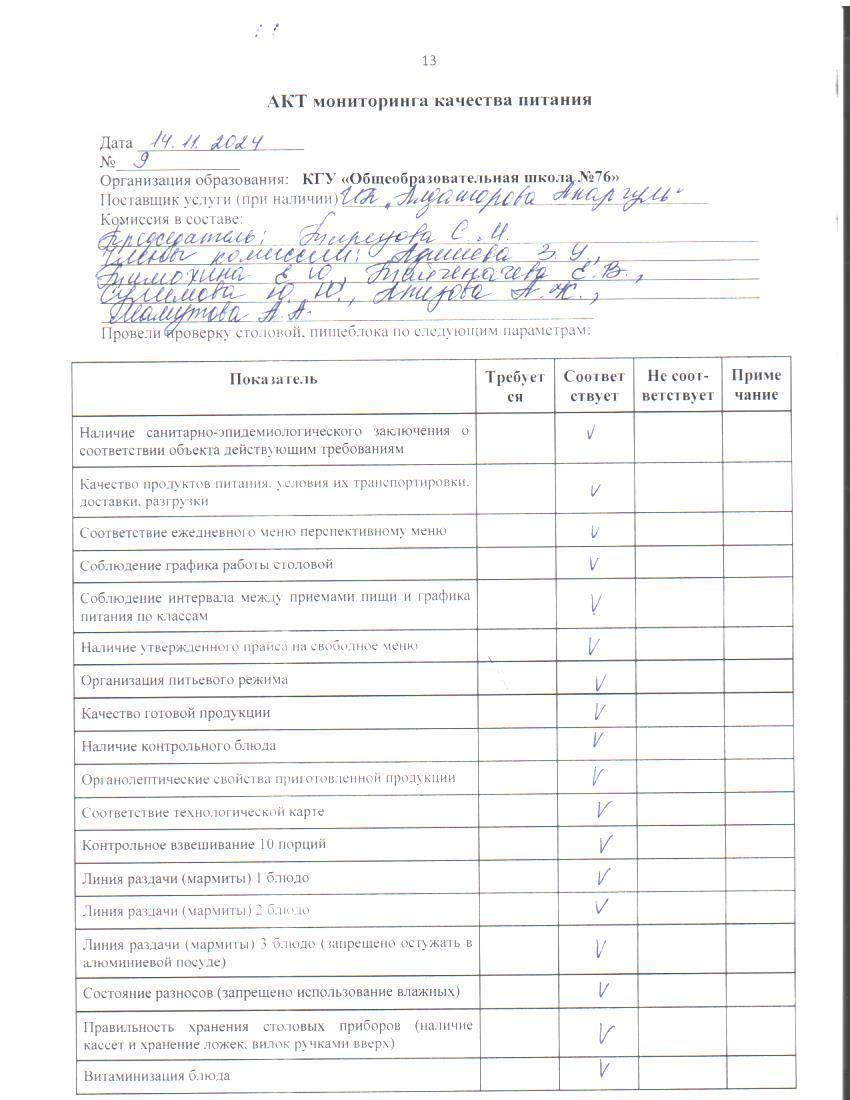 13
АКТ мониторинга качества питания
Дата 14.11.2024
№ 9
Организация образования: КГУ «Общеобразовательная школа №76»
Поставщик услуги (при наличии) ИП
Комиссия в составе:
Председатель: С.
Члены комиссии: З. У.,
Тимохина Е Ю, Е.В.,
Ю. Ю., А.Ж.,
А.А.
Провели проверку столовой, пищеблока по следующим параметрам:
Показатель Требует Соответ Не соот- Приме
ся ствует ветствует чание
Наличие санитарно-эпидемиологического заключения о V
соответствии объекта действующим требованиям
Качество продуктов питания, условия их транспортировки, V
доставки, разгрузки
Соответствие ежедневного меню перспективному меню V
Соблюдение графика работы столовой V
Соблюдение интервала между приемами пищи и графика V
питания по классам
Наличие утвержденного прайса на свободное меню V
Организация питьевого режима V
Качество готовой продукции V
Наличие контрольного блюда V
Органолептические свойства приготовленной продукции V
Соответствие технологической карте V
Контрольное взвешивание 10 порций V
Линия раздачи (мармиты) 1 блюдо V
Линия раздачи (мармиты) 2 блюдо V
Линия раздачи (мармиты) 3 блюдо (запрещено остужать в V
алюминиевой посуде)
Состояние разносов (запрещено использование влажных) V
Правильность хранения столовых приборов (наличие V
кассет и хранение ложек, вилок ручками вверх)
Витаминизация блюда V